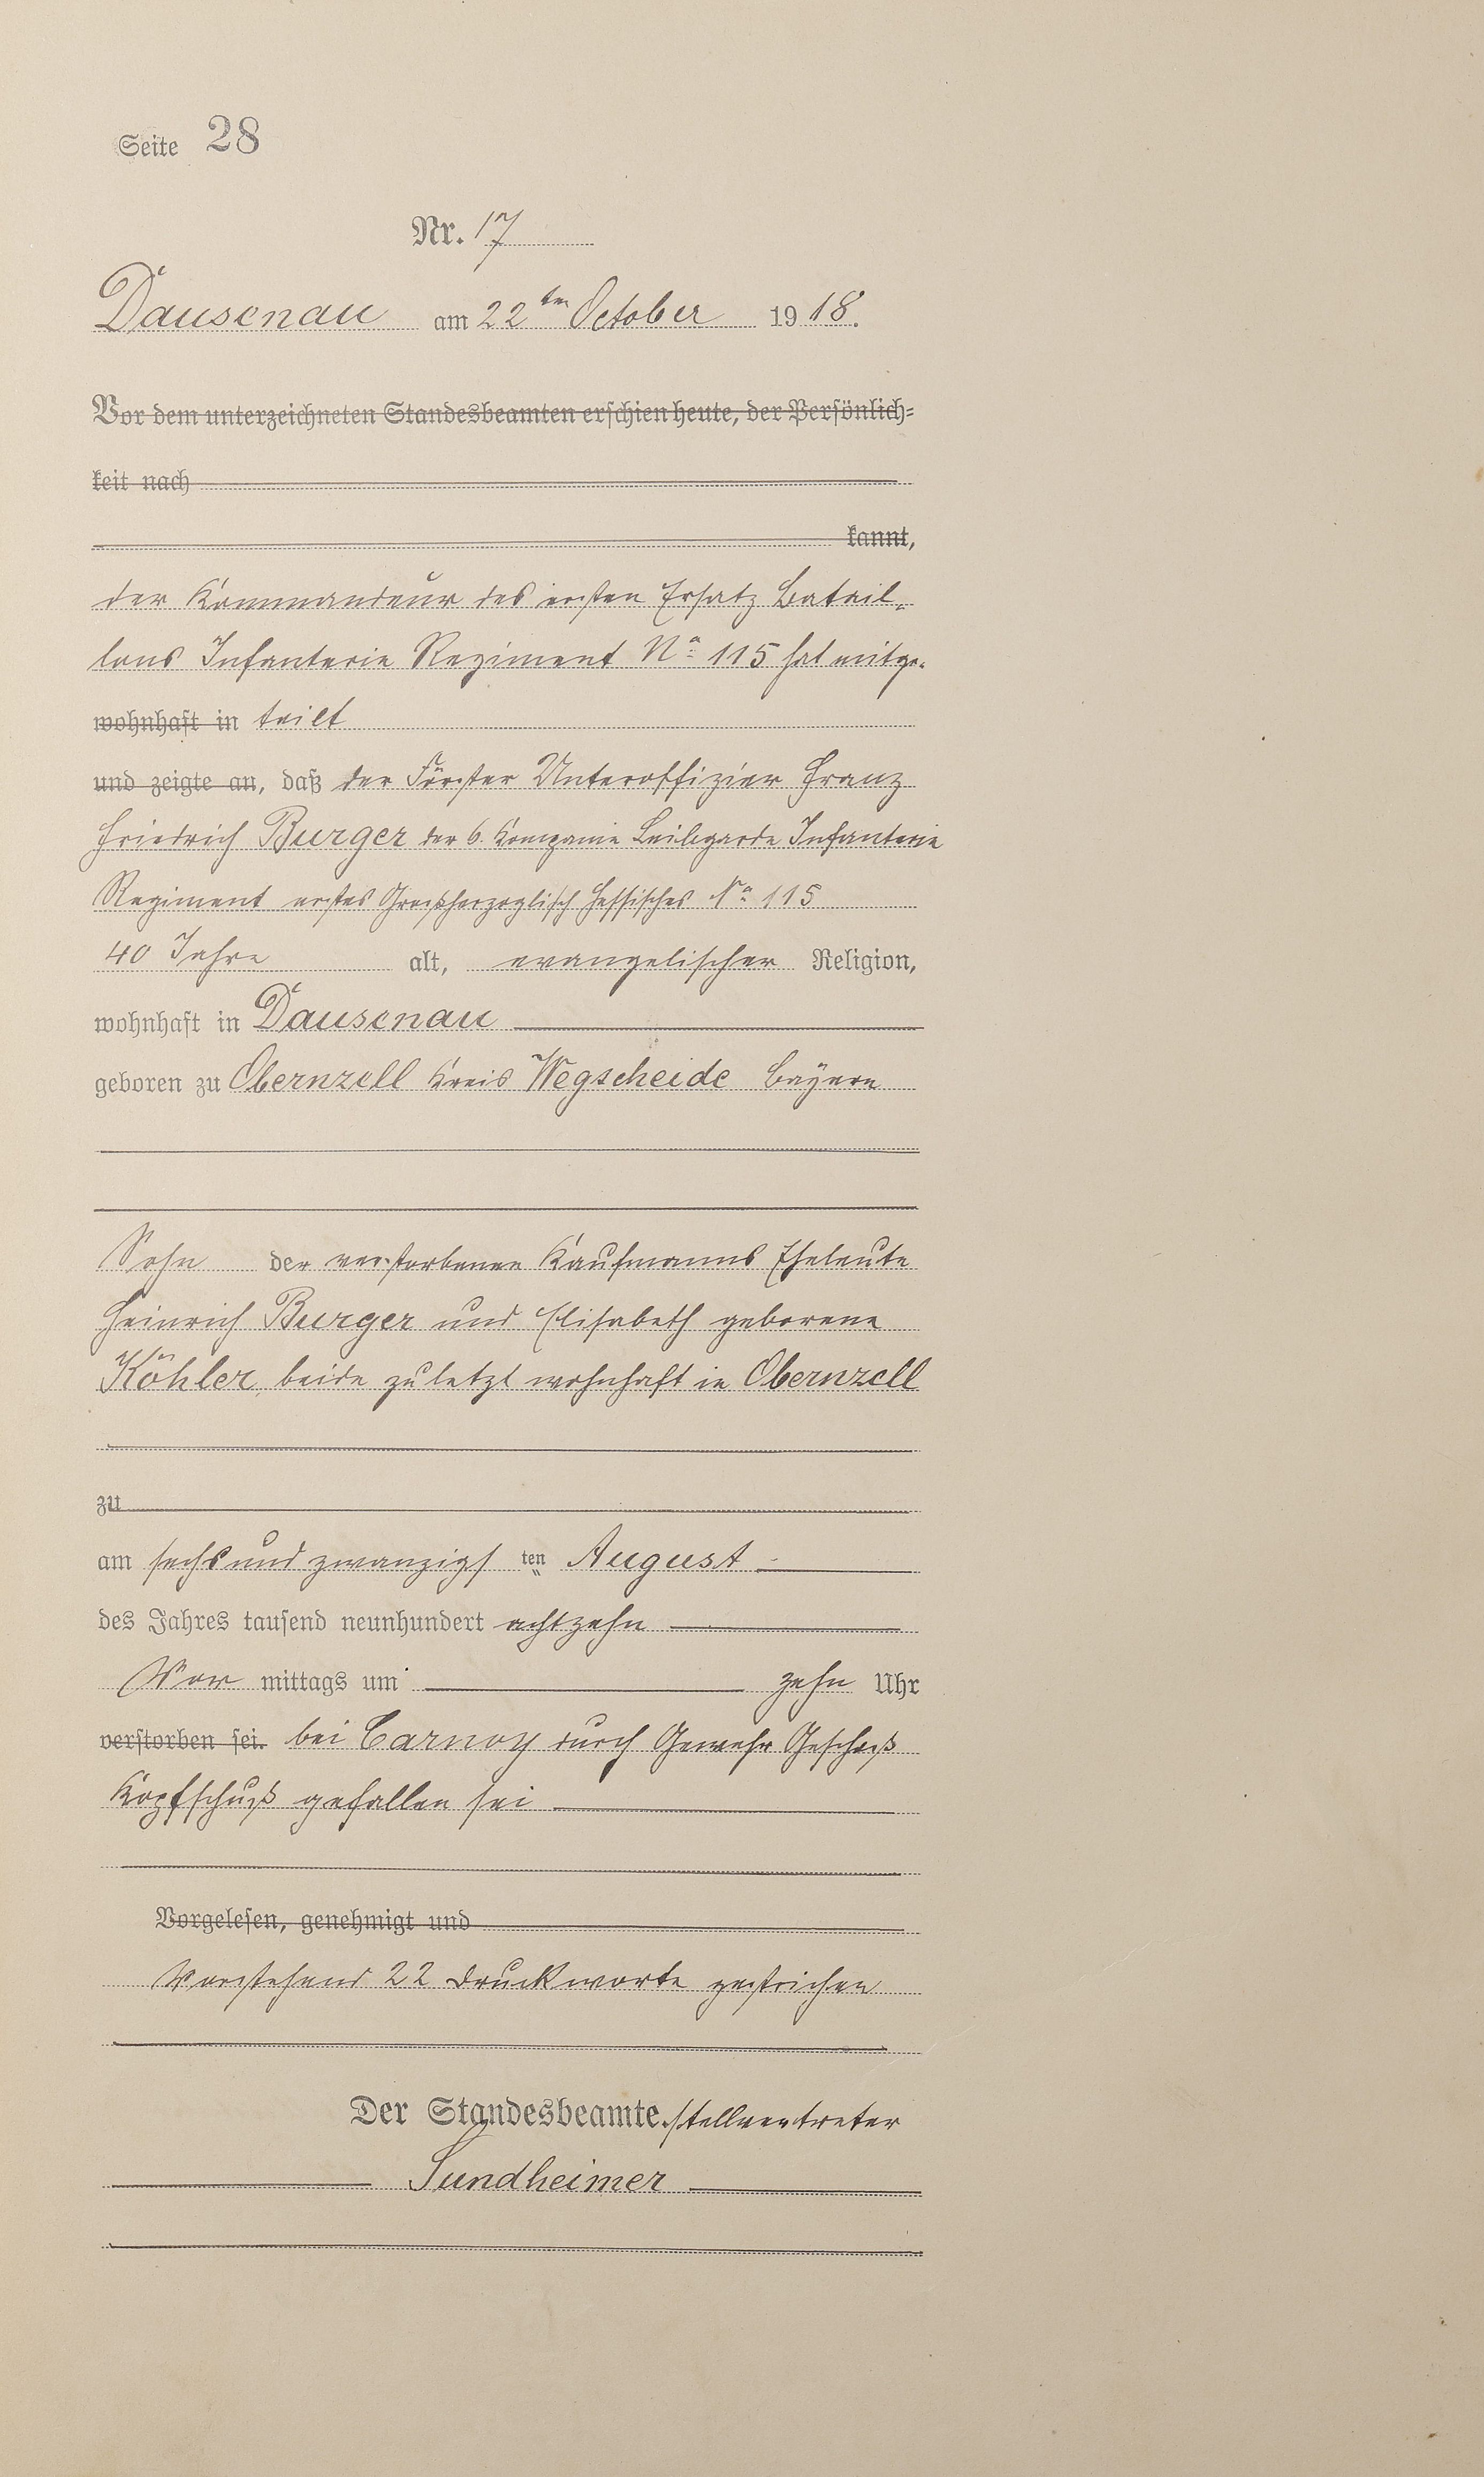 Seite 28
Nr. 17
Dausenau am 22ten October 1918.
Vor dem unterzeichneten Standesbeamten erschien heute, der Persönlich-
keit nach
kannt,
der Kommandeur des ersten Ersatz Batail-
lons Infanterie Regiment No 115 hat mitge-
wohnhaft in teilt
und zeigte an, daß der Förster Unteroffizier Franz
Friedrich Burger der 6. Kompanie Leibgarde Infanterie
Regiment erstes Großherzoglisch Hessisches No 115
40 Jahre alt, evangelischer Religion,
wohnhaft in Dausenau
geboren zu Obernzell Kreis Wegscheide Bayern
Sohn der verstorbenen Kaufmanns Eheleute
Heinrich Burger und Elisabeth geborene
Köhler, beide zuletzt wohnhaft in Obernzell
zu
am sechsundzwanzigsten August
des Jahres tausend neunhundert achtzehn
Vor mittags um zehn Uhr
verstorben sei. bei Carnoy durch Gewehr Geschoß
Kopfschuß gefallen sei
Vorgelesen, genehmigt und
Vorstehend 22 Druckworte gestrichen
Der Standesbeamte.stellvertreter
Sundheimer